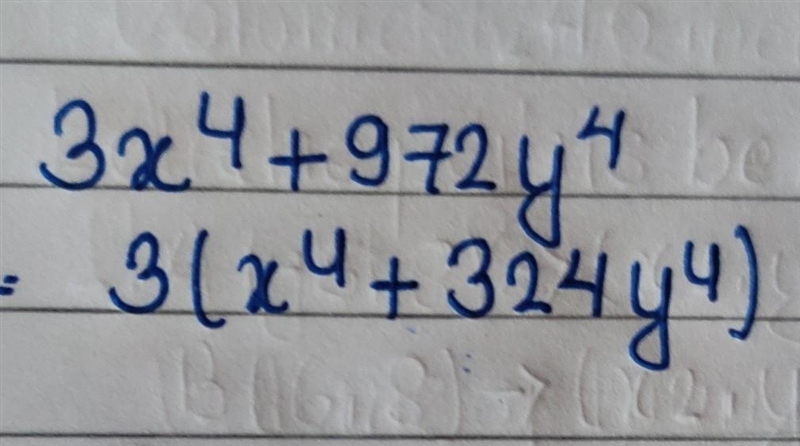 3x⁴+972y⁴
= 3(x⁴+324y⁴)